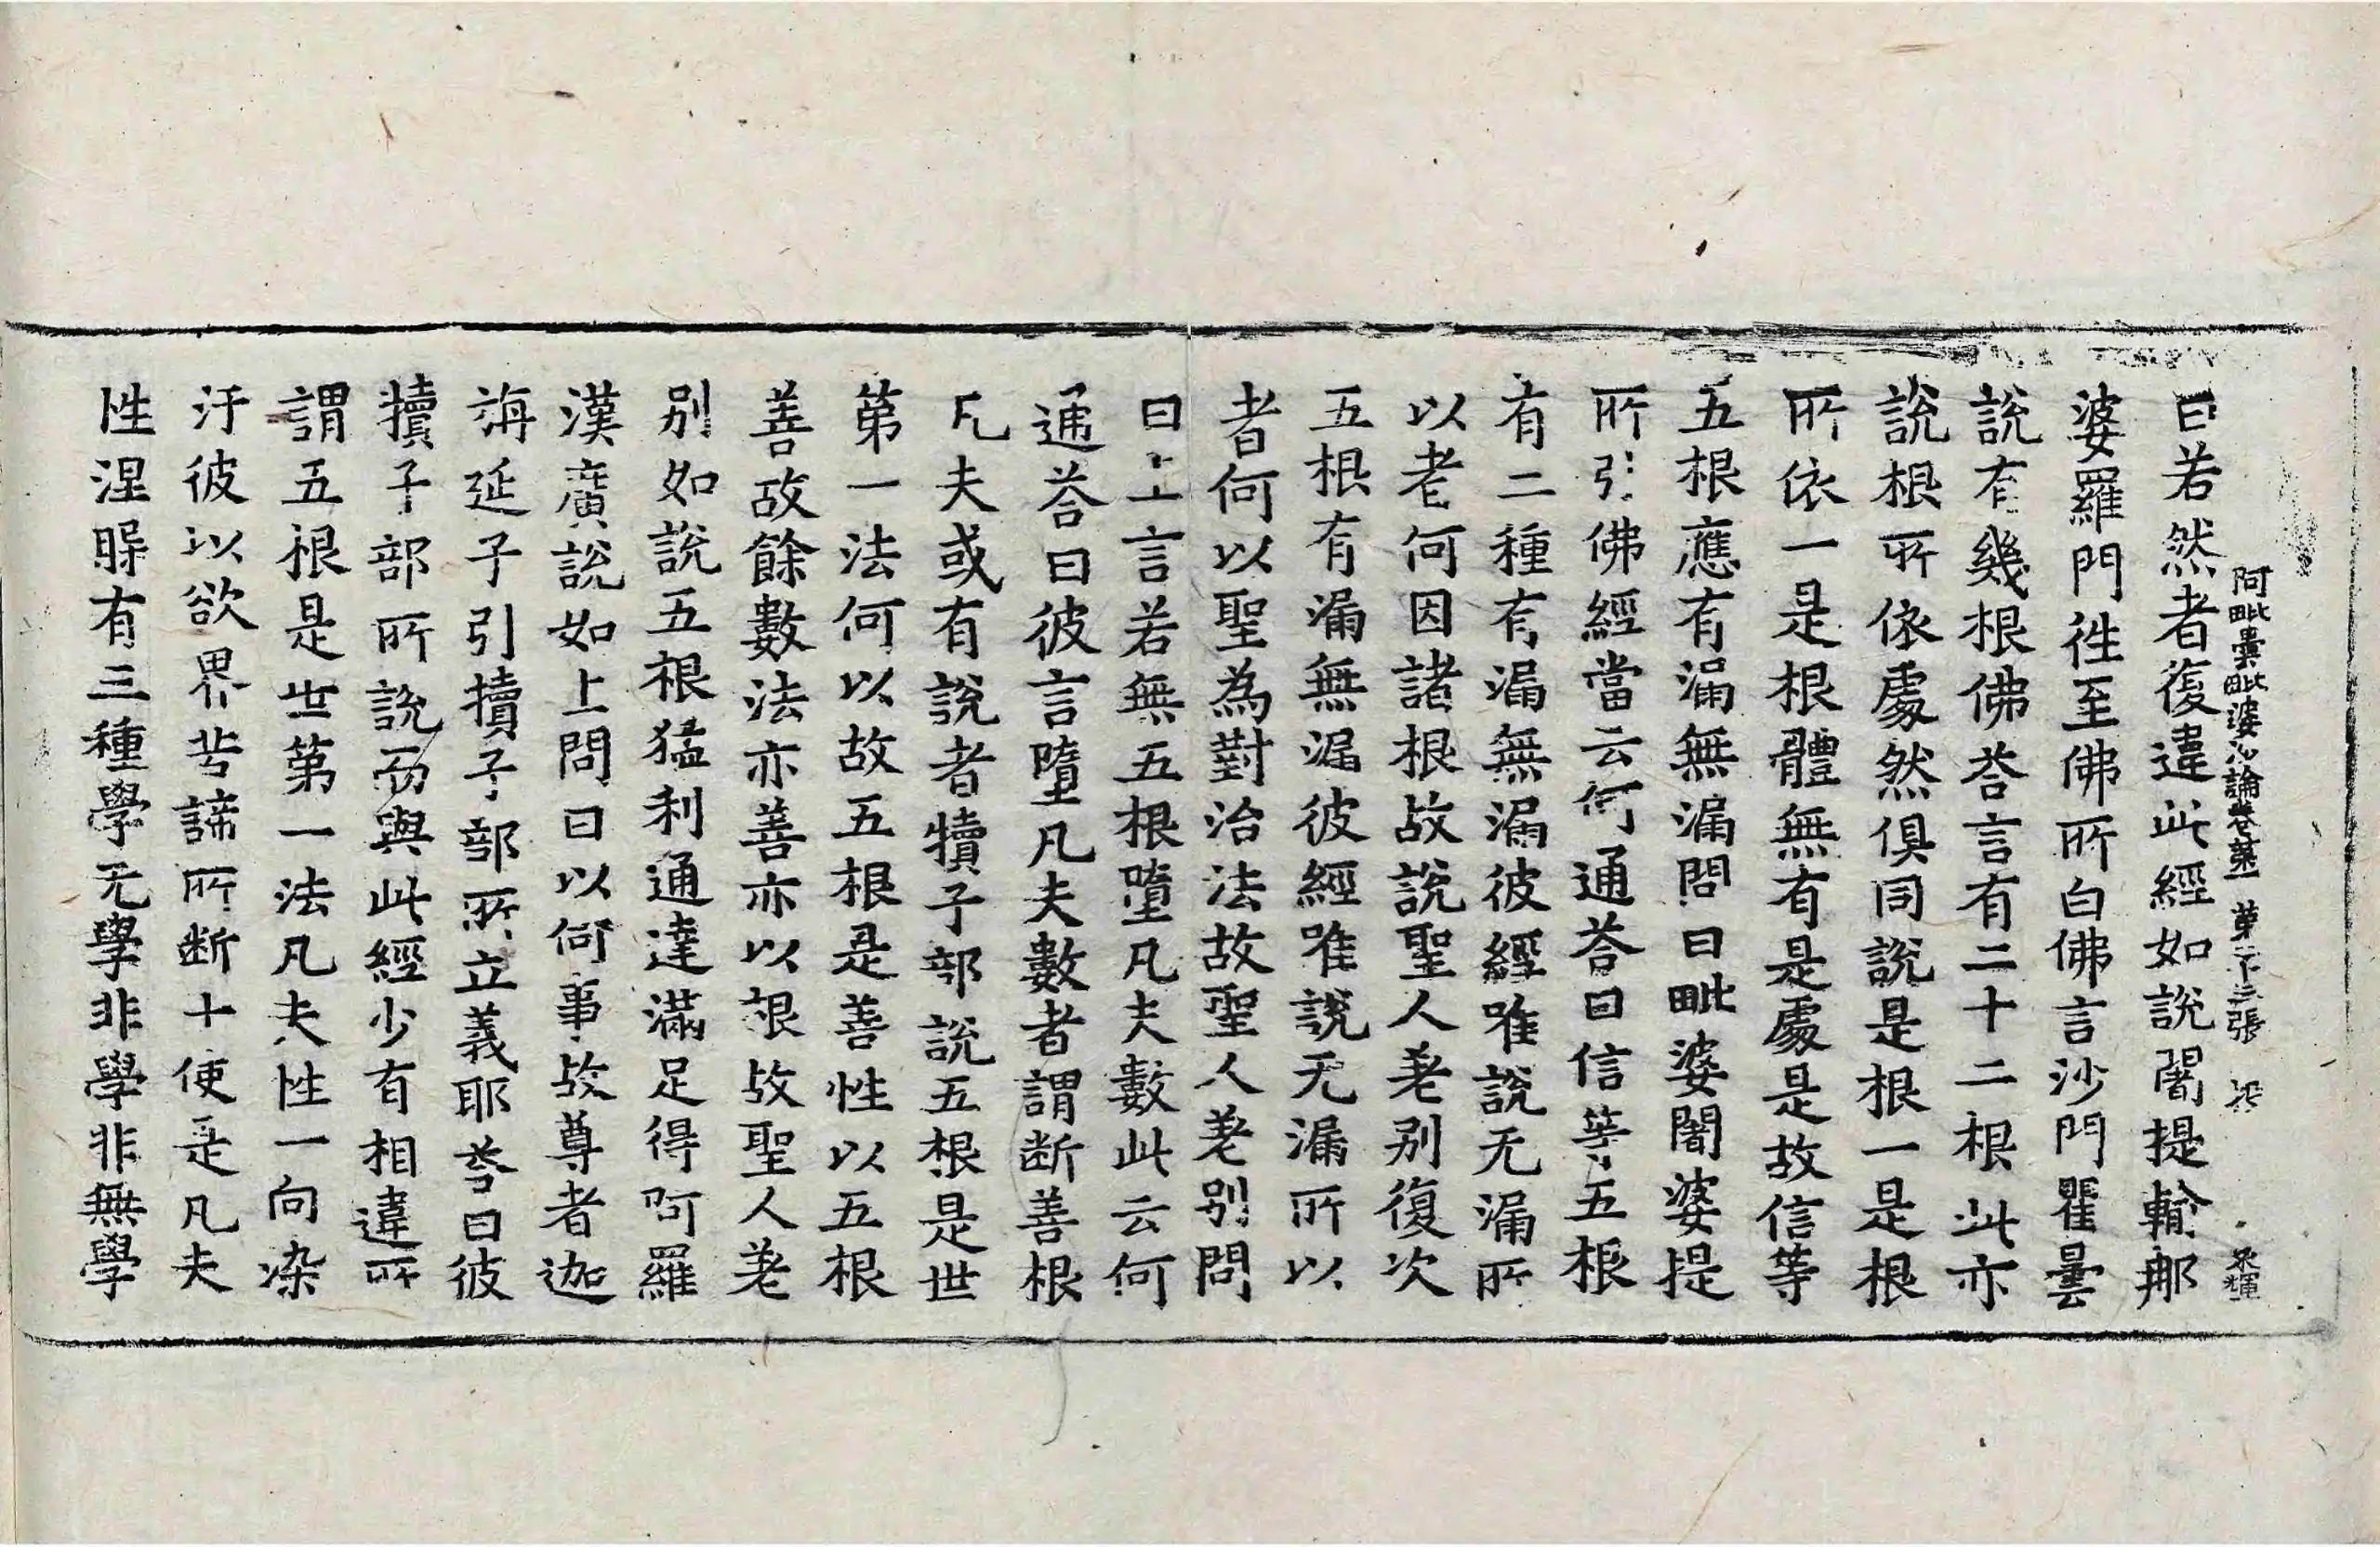 阿毗曇毗婆沙論卷第一 第二十三張
曰若然者復違此經如說闍提輸那
婆羅門徃至佛所白佛言沙門瞿曇
說有幾根佛荅言有二十二根此亦
說根所依處然俱同說是根一是根
所依一是根體無有是處是故信等
五根應有漏無漏問曰毗婆闍婆提
所引佛經當云何通荅曰信等五根
有二種有漏無漏彼經唯說无漏所
以者何因諸根故說聖人差別復次
五根有漏無漏彼經唯說无漏所以
者何以聖為對治法故聖人差別問
曰上言若無五根墮凡夫數此云何
通荅曰彼言墮凡夫數者謂斷善根
凡夫或有說者犢子部說五根是世
第一法何以故五根是善性以五根
善故餘數法亦善亦以根故聖人差
別如說五根猛利通達滿足得阿羅
漢廣說如上問曰以何事故尊者迦
旃延子引犢子部所立義耶荅曰彼
犢子部所說而與此經少有相違所
謂五根是世第一法凡夫性一向染
汙彼以欲界苦諦所斷十使是凡夫
性涅槃有三種學无學非學非無學